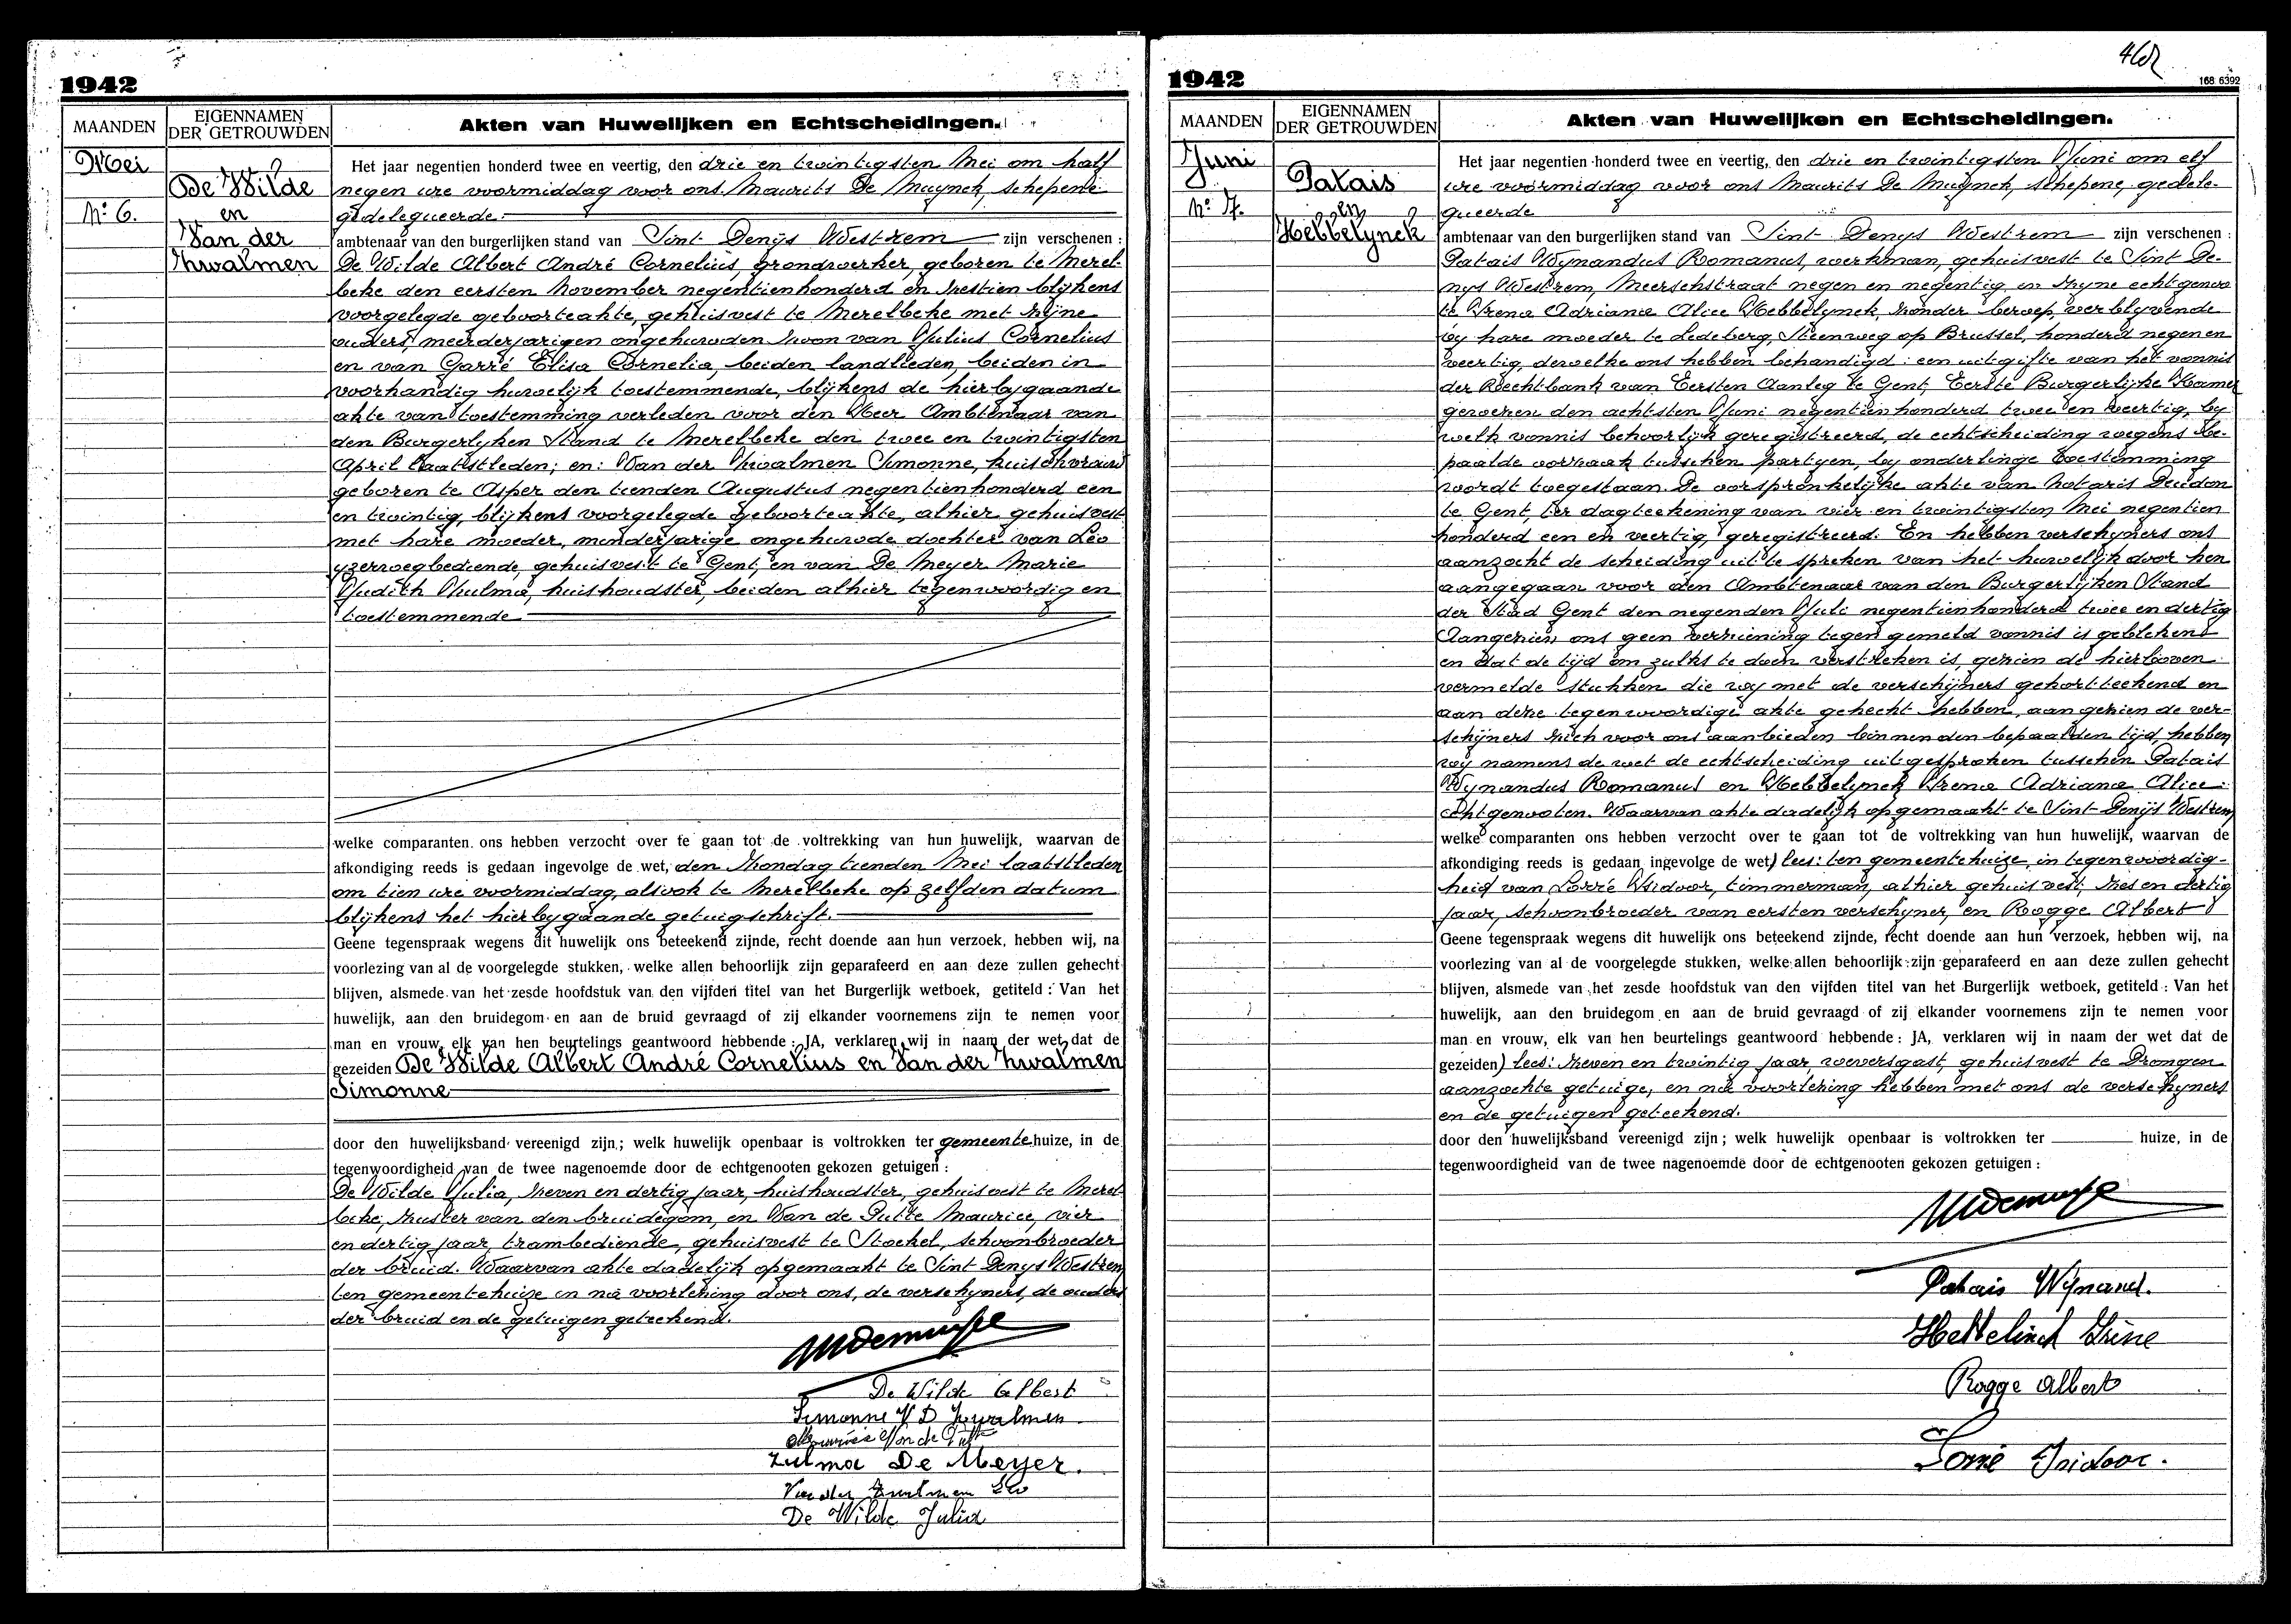 1942
MAANDEN
EIGENNAMEN
DER GETROUWDEN
Akten van Huwelijken en Echtscheidingen.
Mei
De Wilde
Nº 6.
en
Van der
Zwalmen
Het jaar negentien honderd twee en veertig, den drie en twintigsten Mei om half
negen ure voormiddag voor ons Maurits De Muynck, schepene
gedelegueerde
ambtenaar van den burgerlijken stand van Sint Denijs Westrem zijn verschenen :
De Wilde Albert André Cornelius, grondwerker, geboren te Merel-
beke den eersten November negentienhonderd en zestien blijkens
voorgelegde geboorteakte, gehuisvest te Merelbeke met zijne
ouders, meerderjarigen ongehuwden zoon van Julius Cornelius
en van Garré Elisa Cornelia, beiden landlieden, beiden in
voorhandig huwelijk toestemmende, blijkens de hierbygaande
akte van toestemming verleden voor den Heer Ambtenaar van
den Burgerlyken Stand te Merelbeke den twee en twintigsten
April laatstleden; en: Van der Zwalmen Simonne, huishoudster
geboren te Asper den tienden Augustus negentienhonderd een
en twintig, blijkens voorgelegde geboorteakte, alhier gehuisvest
met hare moeder, minderjarige ongehuwde dochter van Léo
yzerwegbediende, gehuisvest te Gent, en van De Meyer Marie
Judith Zulma, huishoudster, beiden alhier tegenwoordig en
toestemmende
welke comparanten ons hebben verzocht over te gaan tot de voltrekking van hun huwelijk, waarvan de
afkondiging reeds is gedaan ingevolge de wet, den Zondag tienden Mei laatstleden
om tien ure voormiddag, alsook te Merelbeke op zelfden datum
blijkens het hierbygaande getuigschrift.
Geene tegenspraak wegens dit huwelijk ons beteekend zijnde, recht doende aan hun verzoek, hebben wij, na
voorlezing van al de voorgelegde stukken, welke allen behoorlijk zijn geparafeerd en aan deze zullen gehecht
blijven, alsmede van het zesde hoofdstuk van den vijfden titel van het Burgerlijk wetboek, getiteld : Van het
huwelijk, aan den bruidegom en aan de bruid gevraagd of zij elkander voornemens zijn te nemen voor
man en vrouw, elk van hen beurtelings geantwoord hebbende : JA, verklaren wij in naam der wet, dat de
gezeiden De Wilde Albert André Cornelius en Van der Zwalmen
Simonne
door den huwelijksband vereenigd zijn ; welk huwelijk openbaar is voltrokken ter gemeentehuize, in de
tegenwoordigheid van de twee nagenoemde door de echtgenooten gekozen getuigen :
De Wilde Julia, zeven en dertig jaar, huishoudster, gehuisvest te Merel-
beke, zuster van den bruidegom, en Van de Putte Maurice, vier
en dertig jaar, trambediende, gehuisvest te Stockel, schoonbroeder
der bruid. Waarvan akte dadelijk opgemaakt te Sint Denys Westrem
ten gemeentehuize en na voorlezing door ons, de verschyners, de ouders
der bruid en de getuigen geteekend.
De Wilde Albert
Simonne V D Zwalmen
Maurice Van de Putte
Zulma De Meyer.
Van der Zwalmen Léo
De Wilde Julia
462
1942
168 6392
MAANDEN
EIGENNAMEN
DER GETROUWDEN
Akten van Huwelijken en Echtscheidingen.
Juni
Patais
Nº 7.
en
Hebbelynck
Het jaar negentien honderd twee en veertig, den drie en twintigsten Juni om elf
ure voormiddag voor ons Maurits De Muynck, schepene gedele-
gueerde
ambtenaar van den burgerlijken stand van Sint Denys Westrem zijn verschenen :
Patais Wynandus Romanus, werkman, gehuisvest te Sint De-
nys Westrem, Meerschstraat negen en negentig en zyne echtgenoo
te Irena Adriana Alice Hebbelynck, zonder beroep, verblyvende
by hare moeder te Ledeberg, Steenweg op Brussel, honderd negen en
veertig, dewelke ons hebben behandigd : een uitgifte van het vonnis
der Rechtbank van Eersten Aanleg te Gent, Eerste Burgerlijke Kamer
gewezen den achtsten Juni negentienhonderd twee en veertig, by
welk vonnis behoorlijk geregistreerd, de echtscheiding wegens be-
paalde oorzaak tusschen partyen, by onderlinge toestemming
wordt toegestaan. De oorspronkelijke akte van Notaris Deudon
te Gent, ter dagteekening van vier en twintigsten Mei negentien
honderd een en veertig, geregistreerd. En hebben verschyners ons
aanzocht de scheiding uit te spreken van het huwelijk door hen
aangegaan voor den Ambtenaar van den Burgerlijken Stand
der Stad Gent den negenden Juli negentienhonderd twee en dertig
Aangezien ons geen verziening tegen gemeld vonnis is gebleken
en dat de tijd om zulks te doen verstreken is, gezien de hierboven
vermelde stukken die wy met de verschijners gekortteekend en
aan deze tegenwoordige akte gehecht hebben, aangezien de ver-
schijners zich voor ons aanbieden binnen den bepaalden tijd, hebben
wy namens de wet de echtscheiding uitgesproken tusschen Patais
Wynandus Romanus en Hebbelynck Irena Adriana Alice:
echtgenooten. Waarvan akte dadelijk opgemaakt te Sint Denijs Westrem
welke comparanten ons hebben verzocht over te gaan tot de voltrekking van hun huwelijk, waarvan de
afkondiging reeds is gedaan ingevolge de wet) lees: ten gemeentehuize, in tegenwoordig-
heid van Lorré Isidoor, timmerman, alhier gehuisvest, zes en dertig
jaar, schoonbroeder van eersten verschyner, en Rogge Albert
Geene tegenspraak wegens dit huwelijk ons beteekend zijnde, recht doende aan hun verzoek, hebben wij, na
voorlezing van al de voorgelegde stukken, welke allen behoorlijk zijn geparafeerd en aan deze zullen gehecht
blijven, alsmede van het zesde hoofdstuk van den vijfden titel van het Burgerlijk wetboek, getiteld : Van het
huwelijk, aan den bruidegom en aan de bruid gevraagd of zij elkander voornemens zijn te nemen voor
man en vrouw, elk van hen beurtelings geantwoord hebbende : JA, verklaren wij in naam der wet dat de
gezeiden) lees: zeven en twintig jaar, weversgast, gehuisvest te Drongen
aanzochte getuige, en na voorlezing hebben met ons de verschyners
en de getuigen geteekend.
door den huwelijksband vereenigd zijn ; welk huwelijk openbaar is voltrokken ter huize, in de
tegenwoordigheid van de twee nagenoemde door de echtgenooten gekozen getuigen :
Patais Wijnand.
Hebbelinck Irène
Rogge Albert
Lorré Isidoor.